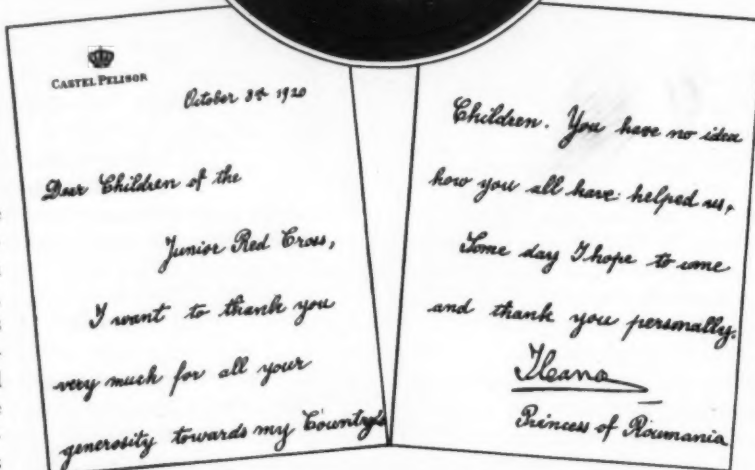 CASTEL PELISOR
October 8th 1920
Dear Children of the
Junior Red Cross,
I want to thank you
very much for all your
generosity towards my Country's
Children. You have no idea
how you all have helped us,
Some day I hope to come
and thank you personally.
Ileana
Princess of Roumania